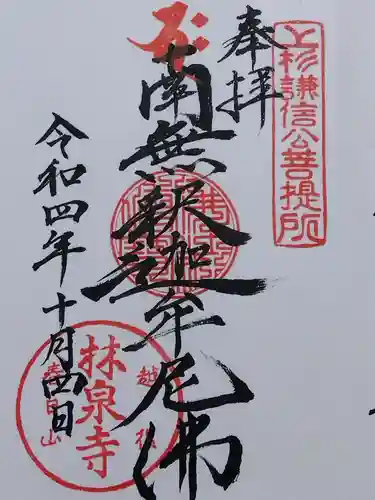 上杉謙信公菩提所
奉拝
南無釈迦牟尼佛
令和四年十月四日
林泉寺
春日山
越後